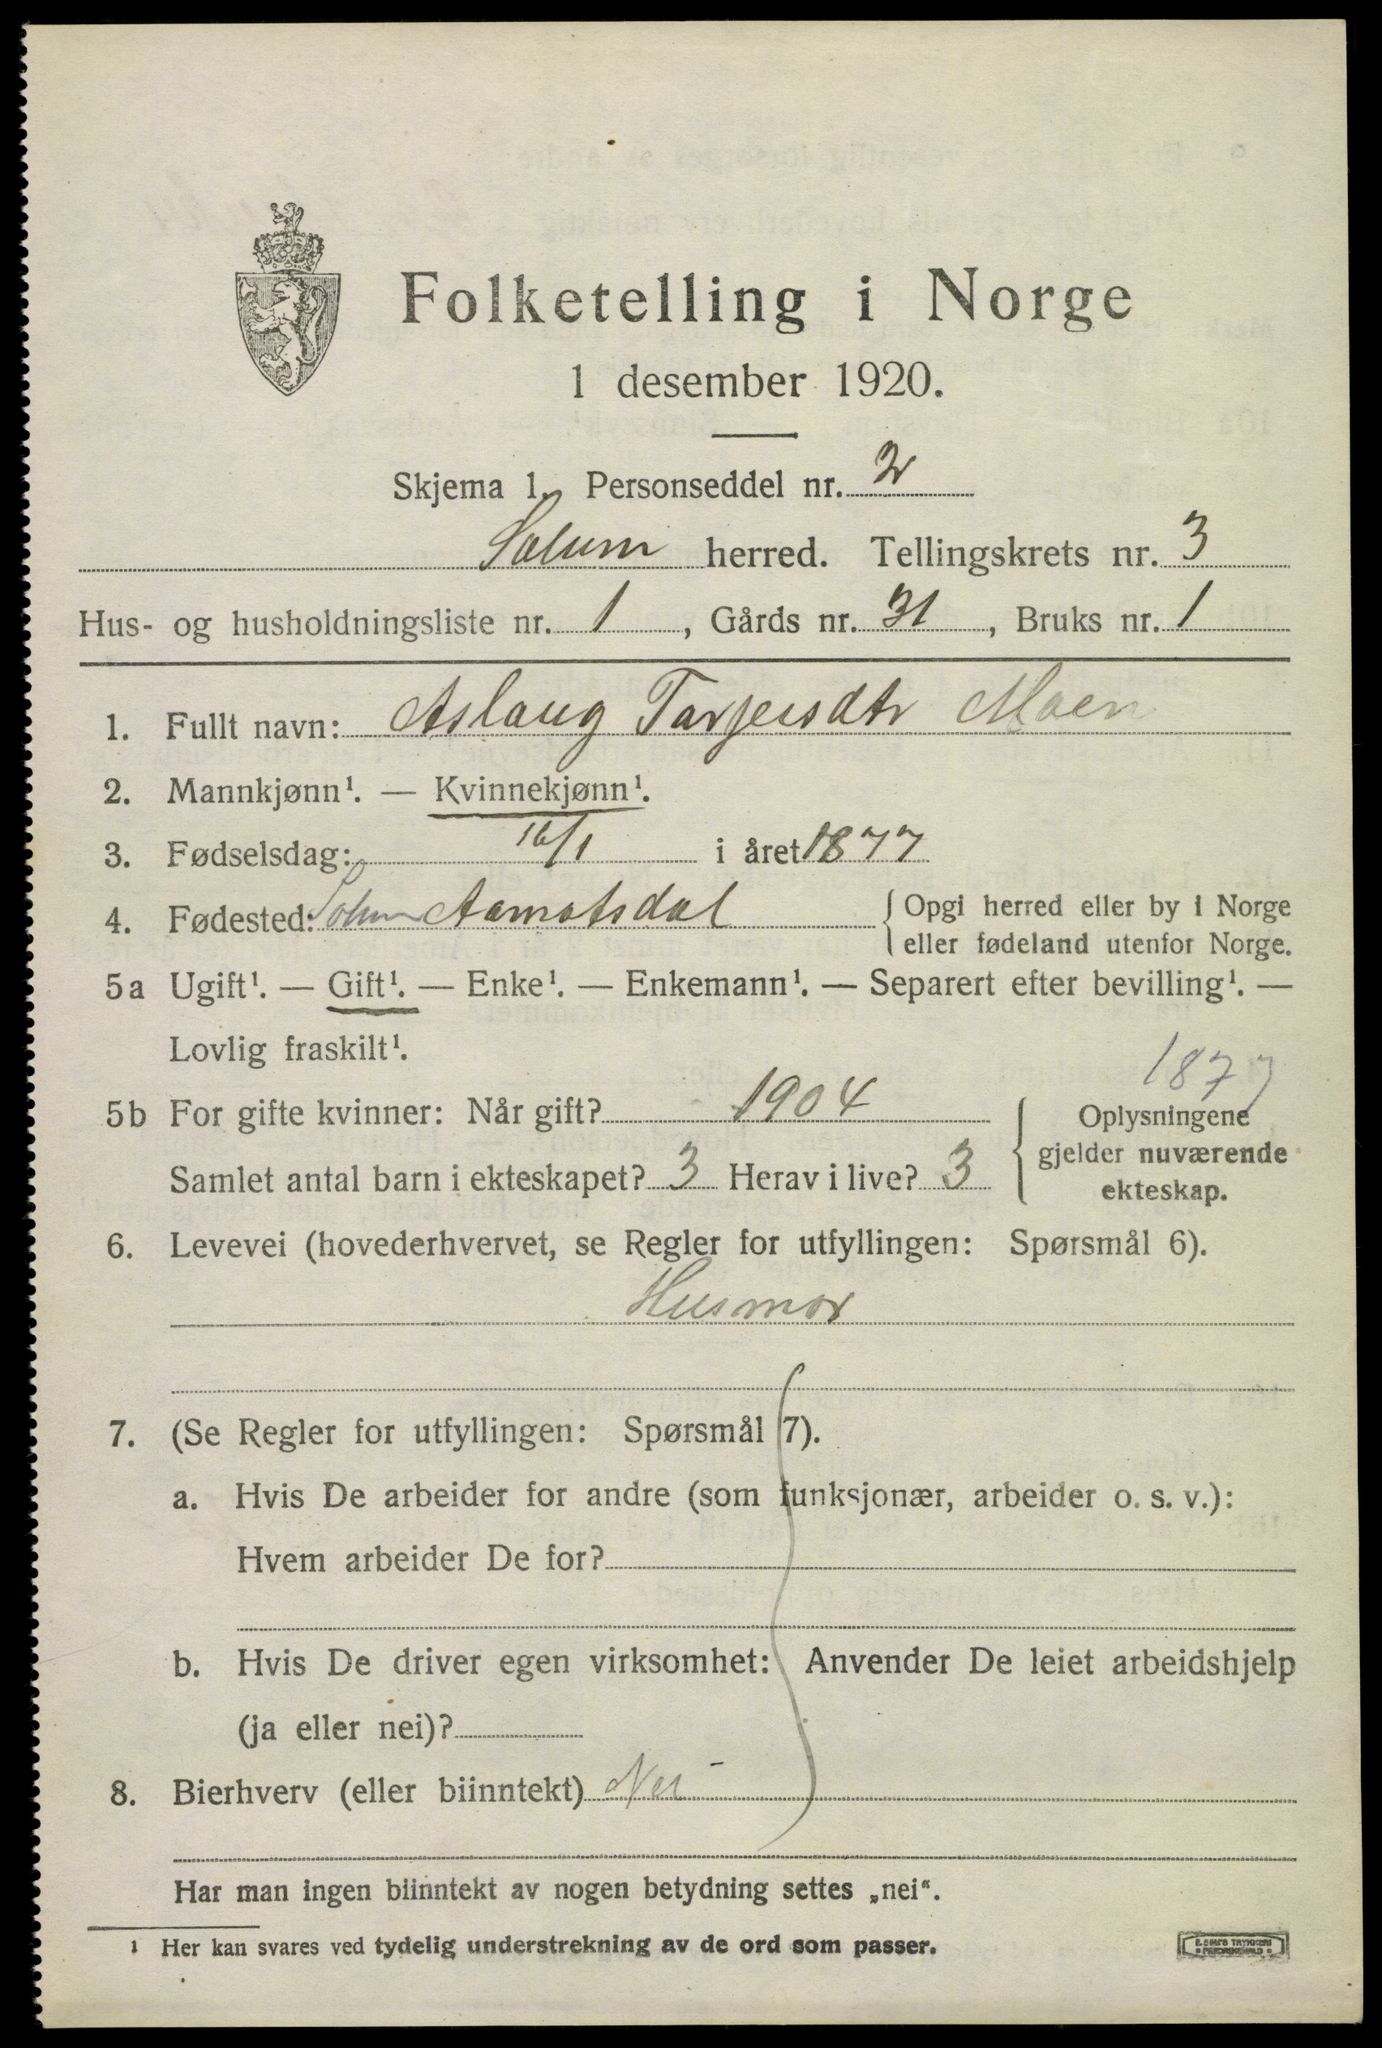 Folketelling i Norge
1 desember 1920.
Skjema 1. Personseddel nr. 2
Solum herred. Tellingskrets nr. 3
Hus- og husholdningsliste nr. 1, Gårds nr. 31, Bruks nr. 1
1. Fullt navn: Aslaug Tarjeisdtr Moen
2. Mannkjønn¹. — Kvinnekjønn¹.
3. Fødselsdag: 16/1 i året 1877
4. Fødested: Solum Aamotsdal {Opgi herred eller by i Norge
eller fødeland utenfor Norge.
5a Ugift¹. — Gift¹. — Enke¹. — Enkemann¹. — Separert efter bevilling¹. —
Lovlig fraskilt¹.
1877
5b For gifte kvinner: Når gift? 1904 { Oplysningene
gjelder nuværende
ekteskap.
Samlet antal barn i ekteskapet? 3 Herav i live? 3
6. Levevei (hovederhvervet, se Regler for utfyllingen: Spørsmål 6).
Husmor
7. (Se Regler for utfyllingen: Spørsmål 7).
a. Hvis De arbeider for andre (som funksjonær, arbeider o. s. v.):
Hvem arbeider De for?
b. Hvis De driver egen virksomhet: Anvender De leiet arbeidshjelp
(ja eller nei)?
8. Bierhverv (eller biinntekt) Nei
Har man ingen biinntekt av nogen betydning settes „nei".
¹ Her kan svares ved tydelig understrekning av de ord som passer.